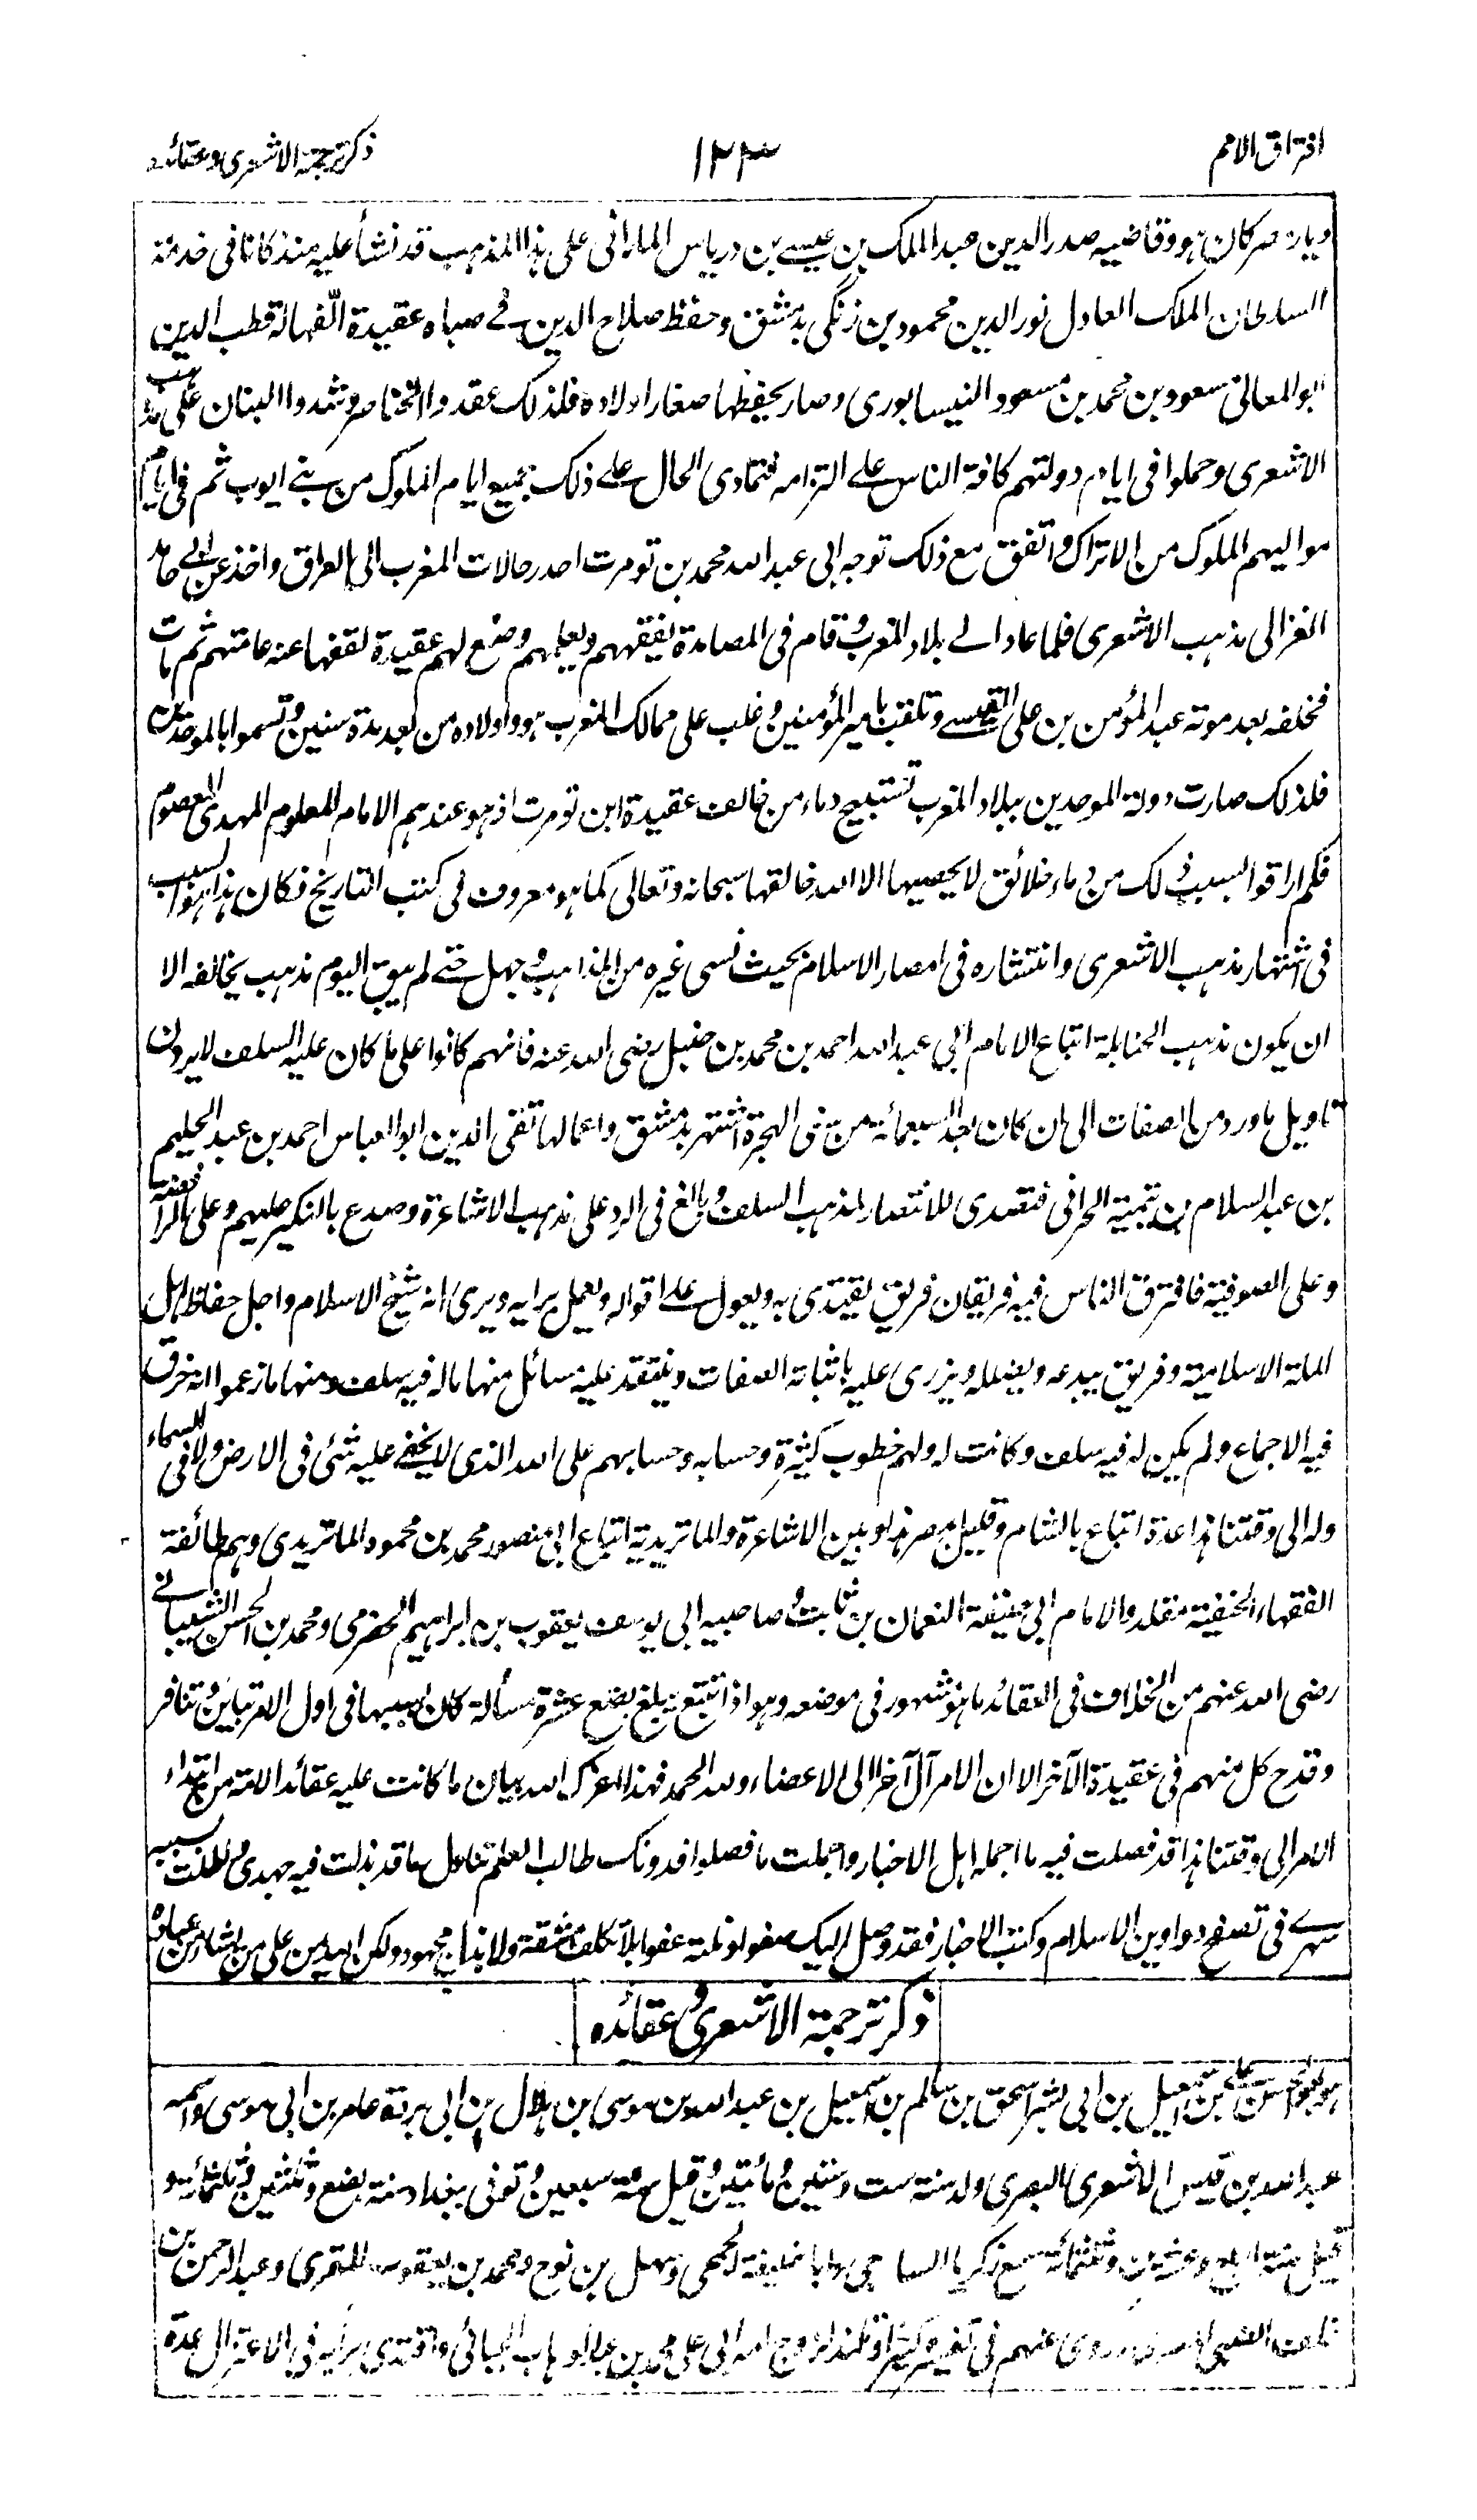 افتراق الامم
۱۲۳
ذكر ترجمة الاشعرى وعقائده
ديار مصر كان هو وقاضيه صدر الدين عبد الملك بن عيسے بن درباس المارانى على هذا المذهب قد نشأ عليه منذ كانا فى خدمة
السلطان الملك العادل نور الدين محمود بن زنگى بدمشق وحفظ صلاح الدين فے صباه عقيدة الّفها له قطب الدين
ابو المعالى مسعود بن محمد بن مسعود النيسابورى وصار يحفظها صغار اولاده فلذلك عقدوا الخناصر وشدوا البنان على مذهب
الاشعرى وحملوا فى ايام دولتهم كافة الناس علے التزامه فتمادى الحال علے ذلك جميع ايام الملوك من بنے ايوب ثم فى ايام
مواليهم الملوك من الاتراك واتفق مع ذلك توجه ابى عبد الله محمد بن تومرت احد رجالات المغرب الى العراق واخذ عن ابے حامد
الغزالى مذهب الاشعرى فلما عاد الے بلاد المغرب وقام فى المصامدة يفقههم ويعلمهم وضع لهم عقيدة لقفها عنه عامتهم ثم مات
فخلفه بعد موته عبد المؤمن بن على القيسے وتلقب بامير المؤمنين وغلب على ممالك المغرب هو واولاده من بعد مدة سنين وتسموا بالموحدين
فلذلك صارت دولة الموحدين ببلاد المغرب تستبيح دماء من خالف عقيدة ابن تومرت اذ هو عندهم الامام المعلوم المهدى المعصوم
فكم اراقوا بسبب ذلك من دماء خلائق لا يحصيها الا الله خالقها سبحانه وتعالى كما هو معروف فى كتب التاريخ فكان هذا هو السبب
فى اشتهار مذهب الاشعرى وانتشاره فى امصار الاسلام بحيث نسى غيره من المذاهب وجهل حتے لم يبق اليوم مذهب يخالفه الا
ان يكون مذهب الحنابلة اتباع الامام ابى عبد الله احمد بن محمد بن حنبل رضى الله عنه فانهم كانوا على ما كان عليه السلف لا يرون
تاويل ما ورد من الصفات الى ان كان بعد السبعمائة من سنى الهجرة اشتهر بدمشق واعمالها تقى الدين ابو العباس احمد بن عبد الحليم
بن عبد السلام بن تيمية الحرانى فتصدى للانتصار لمذهب السلف وبالغ فى الرد على مذهب الاشاعرة وصدع بالنكير عليهم وعلى الرافضة
وعلى الصوفية فافترق الناس فيه فريقان فريق يقتدى به ويعول علے اقواله ويعمل برايه ويرى انه شيخ الاسلام واجل حفاظ اهل
الملة الاسلامية وفريق يبدعه ويضلله ويزرى عليه باثباته الصفات وينتقد عليه مسائل منها ما له فيه سلف ومنها ما زعموا انه خرق
فيه الاجماع ولم يكن له فيه سلف وكانت له ولهم خطوب كثيرة وحسابه وحسابهم على الله الذى لا يخفے عليه شئى فى الارض ولا فى السماء
وله الى وقتنا هذا عدة اتباع بالشام وقليل بمصر هذا وبين الاشاعرة والماتريدية اتباع ابى منصور محمد بن محمود الماتريدى وهم طائفة
الفقهاء الحنفية مقلدو الامام ابى حنيفة النعمان بن ثابت وصاحبيه ابى يوسف يعقوب بن ابراهيم الحضرمى ومحمد بن الحسن الشيبانے
رضى الله عنهم من الخلاف فى العقائد ما هو مشهور فى موضعه وهو اذا تتبع يبلغ بضع عشرة مسألة كان بسببها فى اول الامر تباين وتنافر
وقدح كل منهم فى عقيدة الآخر الا ان الامر آل آخرا الى الاعضاء ولله الحمد فهذا اعزك الله بيان ما كانت عليه عقائد الامة من ابتداء
الامر الى وقتنا هذا قد فصلت فيه ما اجمله اهل الاخبار واجملت ما فصلوا فدونك طالب العلم تناول ما قد بذلت فيه جهدى واطلت بسببه
سهرے فى تصفح دواوين الاسلام وكتب الاخبار فقد وصل اليك صفوا ونلته عفوا بلا تكلف مشقة ولا بذل مجهود ولكن الله يمن على من يشاء من عباده
ذكر ترجمة الاشعرى وعقائده
هو ابو الحسن على بن اسمعيل بن ابى بشر اسحق بن سالم بن اسمعيل بن عبد الله بن موسى بن بلال بن ابى بردة عامر بن ابى موسى واسمه
عبد الله بن قيس الاشعرى البصرى ولد سنة ست وستين ومائتين وقيل سنة سبعين وتوفى ببغداد سنة بضع وثلثين وثلثمائة و
قيل سنة اربع وعشرين وثلثمائة سمع زكريا الساجى وابا خليفة الجمحى وسهل بن نوح ومحمد بن يعقوب المقرى وعبد الرحمن بن
خلف الضبى وروى عنهم فى تفسيره كثيرا وتلمذ لزوج امه ابى على محمد بن عبد الوهاب الجبائى واقتدى برايه فى الاعتزال عدة